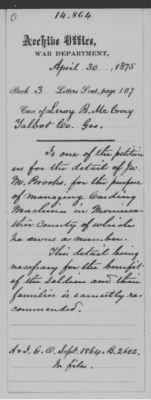 14.864
Archive Office,
WAR DEPARTMENT,
April 30, 1875
Book 3 Letters Sent, page 107
Case of Leroy B. McCrory
Talbot Co. Geo.
Is one of the petition
ers for the detail of Ja
M. Brooks, for the purpose
of managing Carding
Machines in
County of which
he owns a number.
This detail being
necessary for the benefit
of the Soldiers and their
families is earnestly re-
commended.
A & I. G. O. Sept. 1864. B. 2602.
In files.